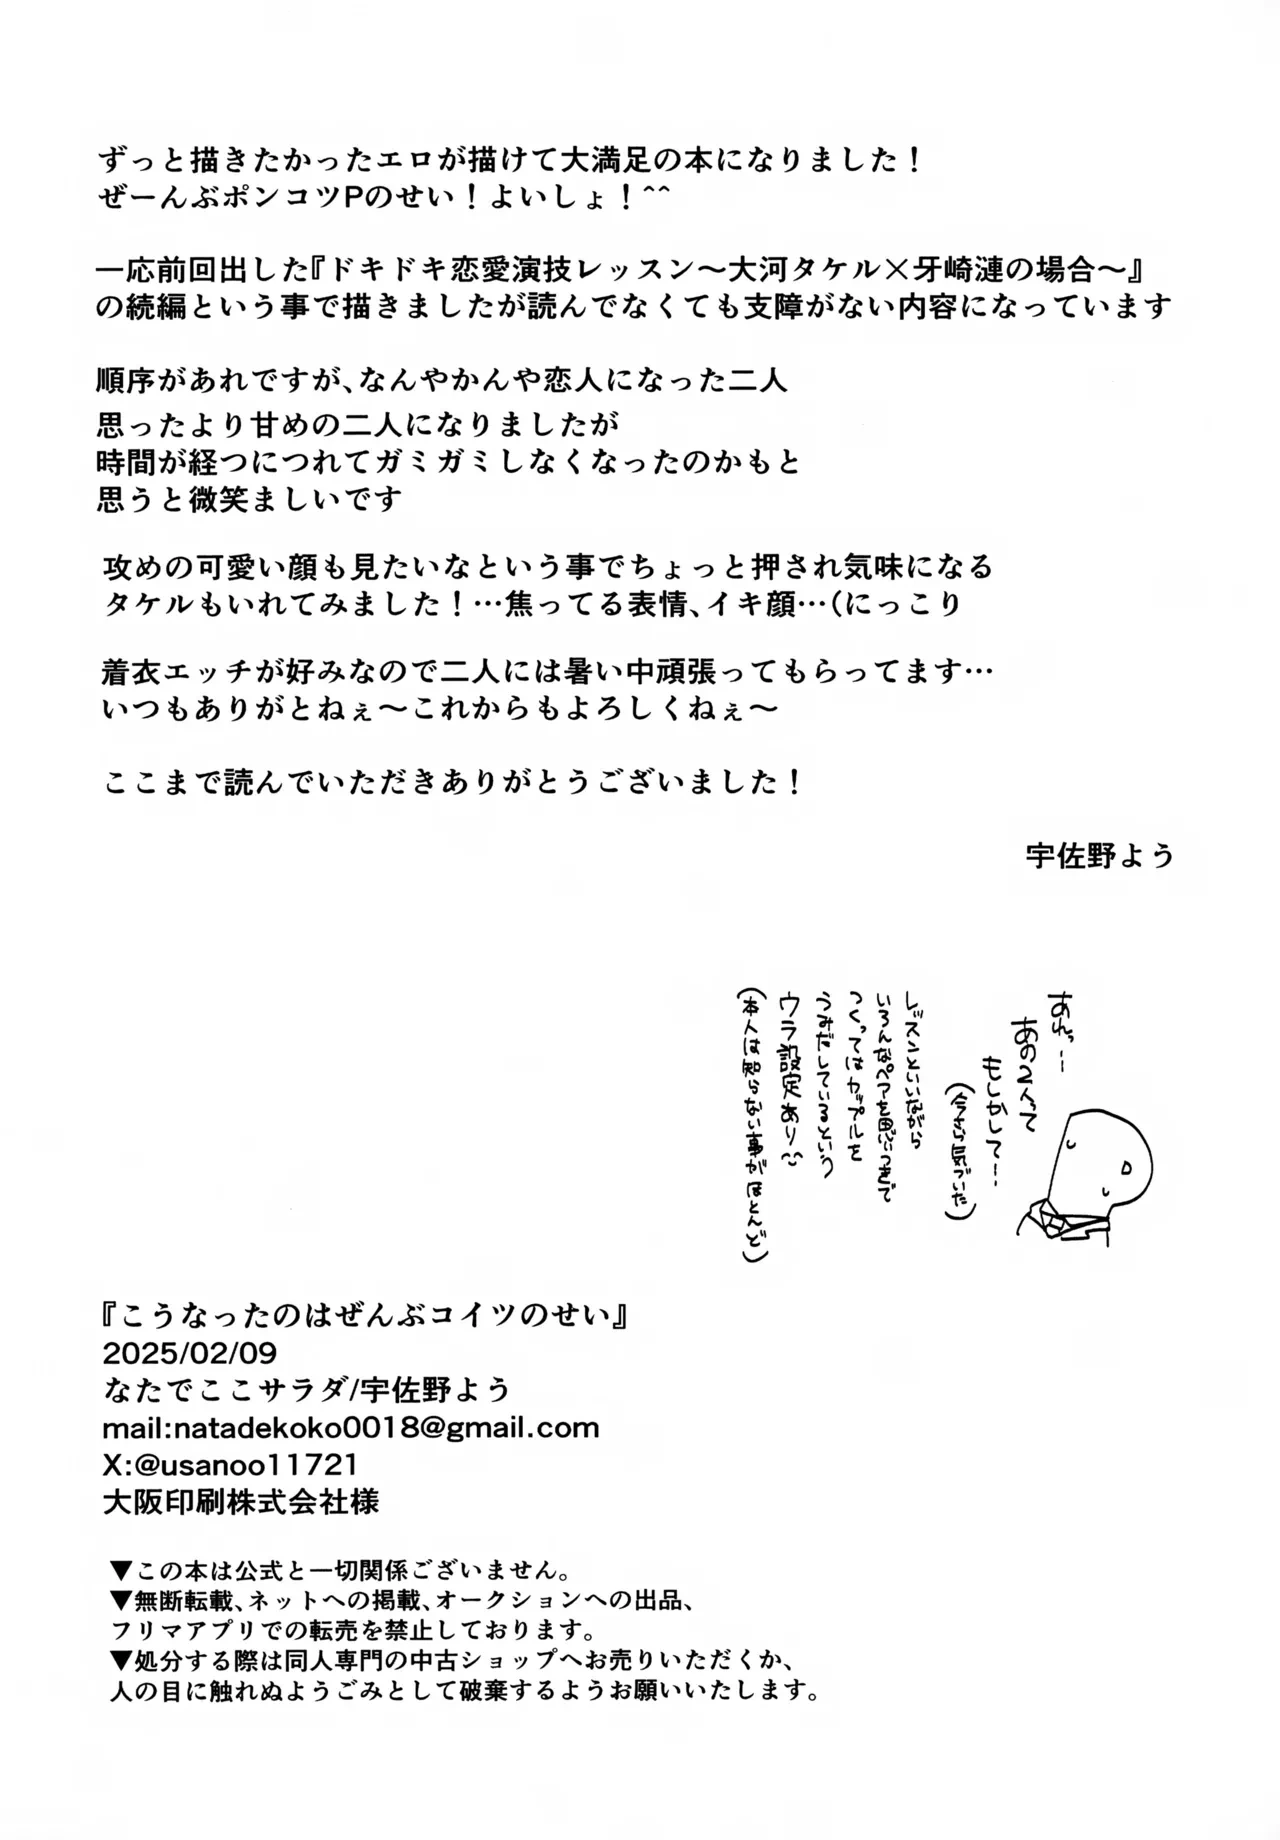 ずっと描きたかったエロが描けて大満足の本になりました！
ぜーんぶポンコツPのせい！よいしょ！^^
一応前回出した『ドキドキ恋愛演技レッスン〜大河タケル×牙崎漣の場合〜』
の続編という事で描きましたが読んでなくても支障がない内容になっています
順序があれですが、なんやかんや恋人になった二人
思ったより甘めの二人になりましたが
時間が経つにつれてガミガミしなくなったのかもと
思うと微笑ましいです
攻めの可愛い顔も見たいなという事でちょっと押され気味になる
タケルもいれてみました！…焦ってる表情、イキ顔…（にっこり
着衣エッチが好みなので二人には暑い中頑張ってもらってます…
いつもありがとねぇ〜これからもよろしくねぇ〜
ここまで読んでいただきありがとうございました！
宇佐野よう
あれっ…
あの2人って
もしかして…
（今さら気づいた）
レッスンといいながら
いろんなペアを思いつきで
つくってはカップルを
うみだしているという
ウラ設定あり
（本人は知らない事がほとんど）
『こうなったのはぜんぶコイツのせい』
2025/02/09
なたでここサラダ/宇佐野よう
mail:natadekoko0018@gmail.com
X:@usanoo11721
大阪印刷株式会社様
▼この本は公式と一切関係ございません。
▼無断転載、ネットへの掲載、オークションへの出品、
フリマアプリでの転売を禁止しております。
▼処分する際は同人専門の中古ショップへお売りいただくか、
人の目に触れぬようごみとして破棄するようお願いいたします。